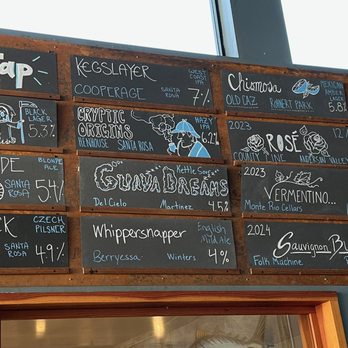 Tap
BLACK
LAGER
5.3%
DE
BLONDE
ALE
SANTA
ROSA
5.4%
CK
CZECH
PILSNER
SANTA
ROSA
4.9%
KEGSLAYER
WEST
COAST
IPA
COOPERAGE SANTA ROSA 7%
CRYPTIC
ORIGINS
HAZY
IPA
6.2%
HENHOUSE SANTA ROSA
Kettle Sour
GUAVA DREAMS
Del Cielo Martinez 4.5%
Whippersnapper
English
Mild Ale
Berryessa Winters 4%
Chismosa
MEXICAN
AMBER
OLD CAZ ROHNERT PARK 5.8%
2023
ROSÉ
COUNTY LINE ANDERSON VALLEY
2023
VERMENTINO...
Monte Rio Cellars
2024
Sauvignon Bl
Folk Machine